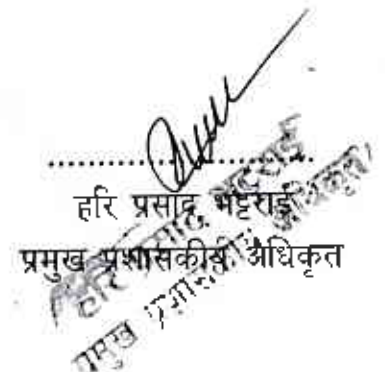 हरि प्रसाद भट्टराई
प्रमुख प्रशासकीय अधिकृत
हरि प्रसाद भट्टराई
प्रमुख प्रशासकीय अधिकृत